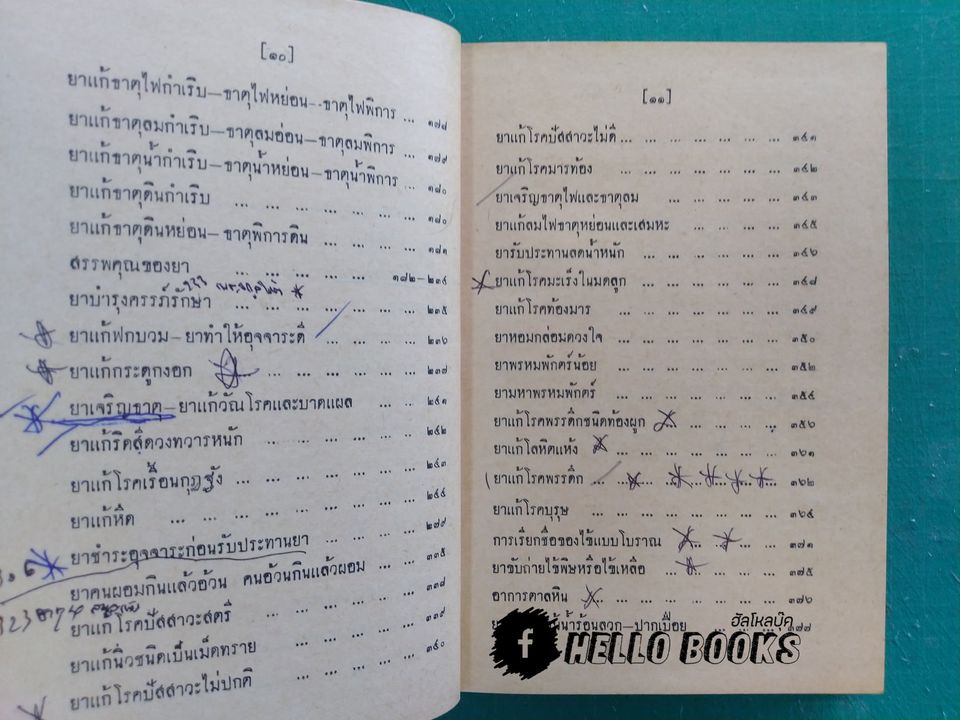 [๑๐]
ยาแก้ธาตุไฟกำเริบ–ธาตุไฟหย่อน–ธาตุไฟพิการ ... ๑๗๘
ยาแก้ธาตุลมกำเริบ–ธาตุลมอ่อน–ธาตุลมพิการ ... ๑๗๙
ยาแก้ธาตุน้ำกำเริบ–ธาตุน้ำหย่อน–ธาตุน้ำพิการ ... ๑๘๐
ยาแก้ธาตุดินกำเริบ ... ... ... ... ... ... ๑๘๐
ยาแก้ธาตุดินหย่อน–ธาตุพิการดิน ... ... ... ... ๑๘๑
สรรพคุณของยา ... ... ... ... ๑๘๒–๒๓๔
ยาบำรุงครรภ์รักษา ... ... ... ... ... ... ๒๓๕
ยาแก้ฟกบวม–ยาทำให้อุจจาระดี ... ... ... ... ๒๓๖
ยาแก้กระดูกงอก ... ... ... ... ... ๒๓๗
ยาเจริญธาตุ–ยาแก้วัณโรคและบาดแผล ... ... ๒๔๑
ยาแก้ริดสีดวงทวารหนัก ... ... ... ... ... ๒๔๒
ยาแก้โรคเรื้อนกุฏฐัง ... ... ... ... ... ๒๔๓
ยาแก้หิด ... ... ... ... ... ... ... ๒๔๔
ยาชำระอุจจาระก่อนรับประทานยา ... ... ... ๒๗๙
ยาคนผอมกินแล้วอ้วน คนอ้วนกินแล้วผอม ... ... ๓๓๕
ยาแก้โรคปัสสาวะสตรี ... ... ... ... ... ๓๓๘
ยาแก้นิ่วชนิดเป็นเม็ดทราย ... ... ... ... ๓๓๙
ยาแก้โรคปัสสาวะไม่ปกติ ... ... ... ... ๓๔๐
[๑๑]
ยาแก้โรคปัสสาวะไม่ดี ... ... ... ... ... ... ๓๔๑
ยาแก้โรคมารท้อง ... ... ... ... ... ... ๓๔๒
ยาเจริญธาตุไฟและธาตุลม ... ... ... ... ๓๔๓
ยาแก้ลมไฟธาตุหย่อนและเสมหะ ... ... ... ... ๓๔๕
ยารับประทานลดน้ำหนัก ... ... ... ... ... ๓๔๖
ยาแก้โรคมะเร็งในมดลูก ... ... ... ... ... ๓๔๘
ยาแก้โรคท้องมาร ... ... ... ... ... ... ๓๔๙
ยาหอมกล่อมดวงใจ ... ... ... ... ... ๓๕๐
ยาพรหมพักตร์น้อย ... ... ... ... ... ... ๓๕๒
ยามหาพรหมพักตร์ ... ... ... ... ... ... ๓๕๔
ยาแก้โรคพรรดึกชนิดท้องผูก ... ... ... ... ๓๕๖
ยาแก้โลหิตแห้ง ... ... ... ... ... ... ๓๖๑
ยาแก้โรคพรรดึก ... ... ... ... ... ... ๓๖๒
ยาแก้โรคบุรุษ ... ... ... ... ... ... ๓๖๔
การเรียกชื่อของไข้แบบโบราณ ... ... ... ... ๓๗๑
ยาขับถ่ายไข้พิษหรือไข้เหลือ ... ... ... ... ๓๗๕
อาการตาลหิน ... ... ... ... ... ... ๓๗๖
น้ำร้อนลวก–ปากเปื่อย ... ๓๗๗
ฮัลโหลบุ๊ค
f HELLO BOOKS